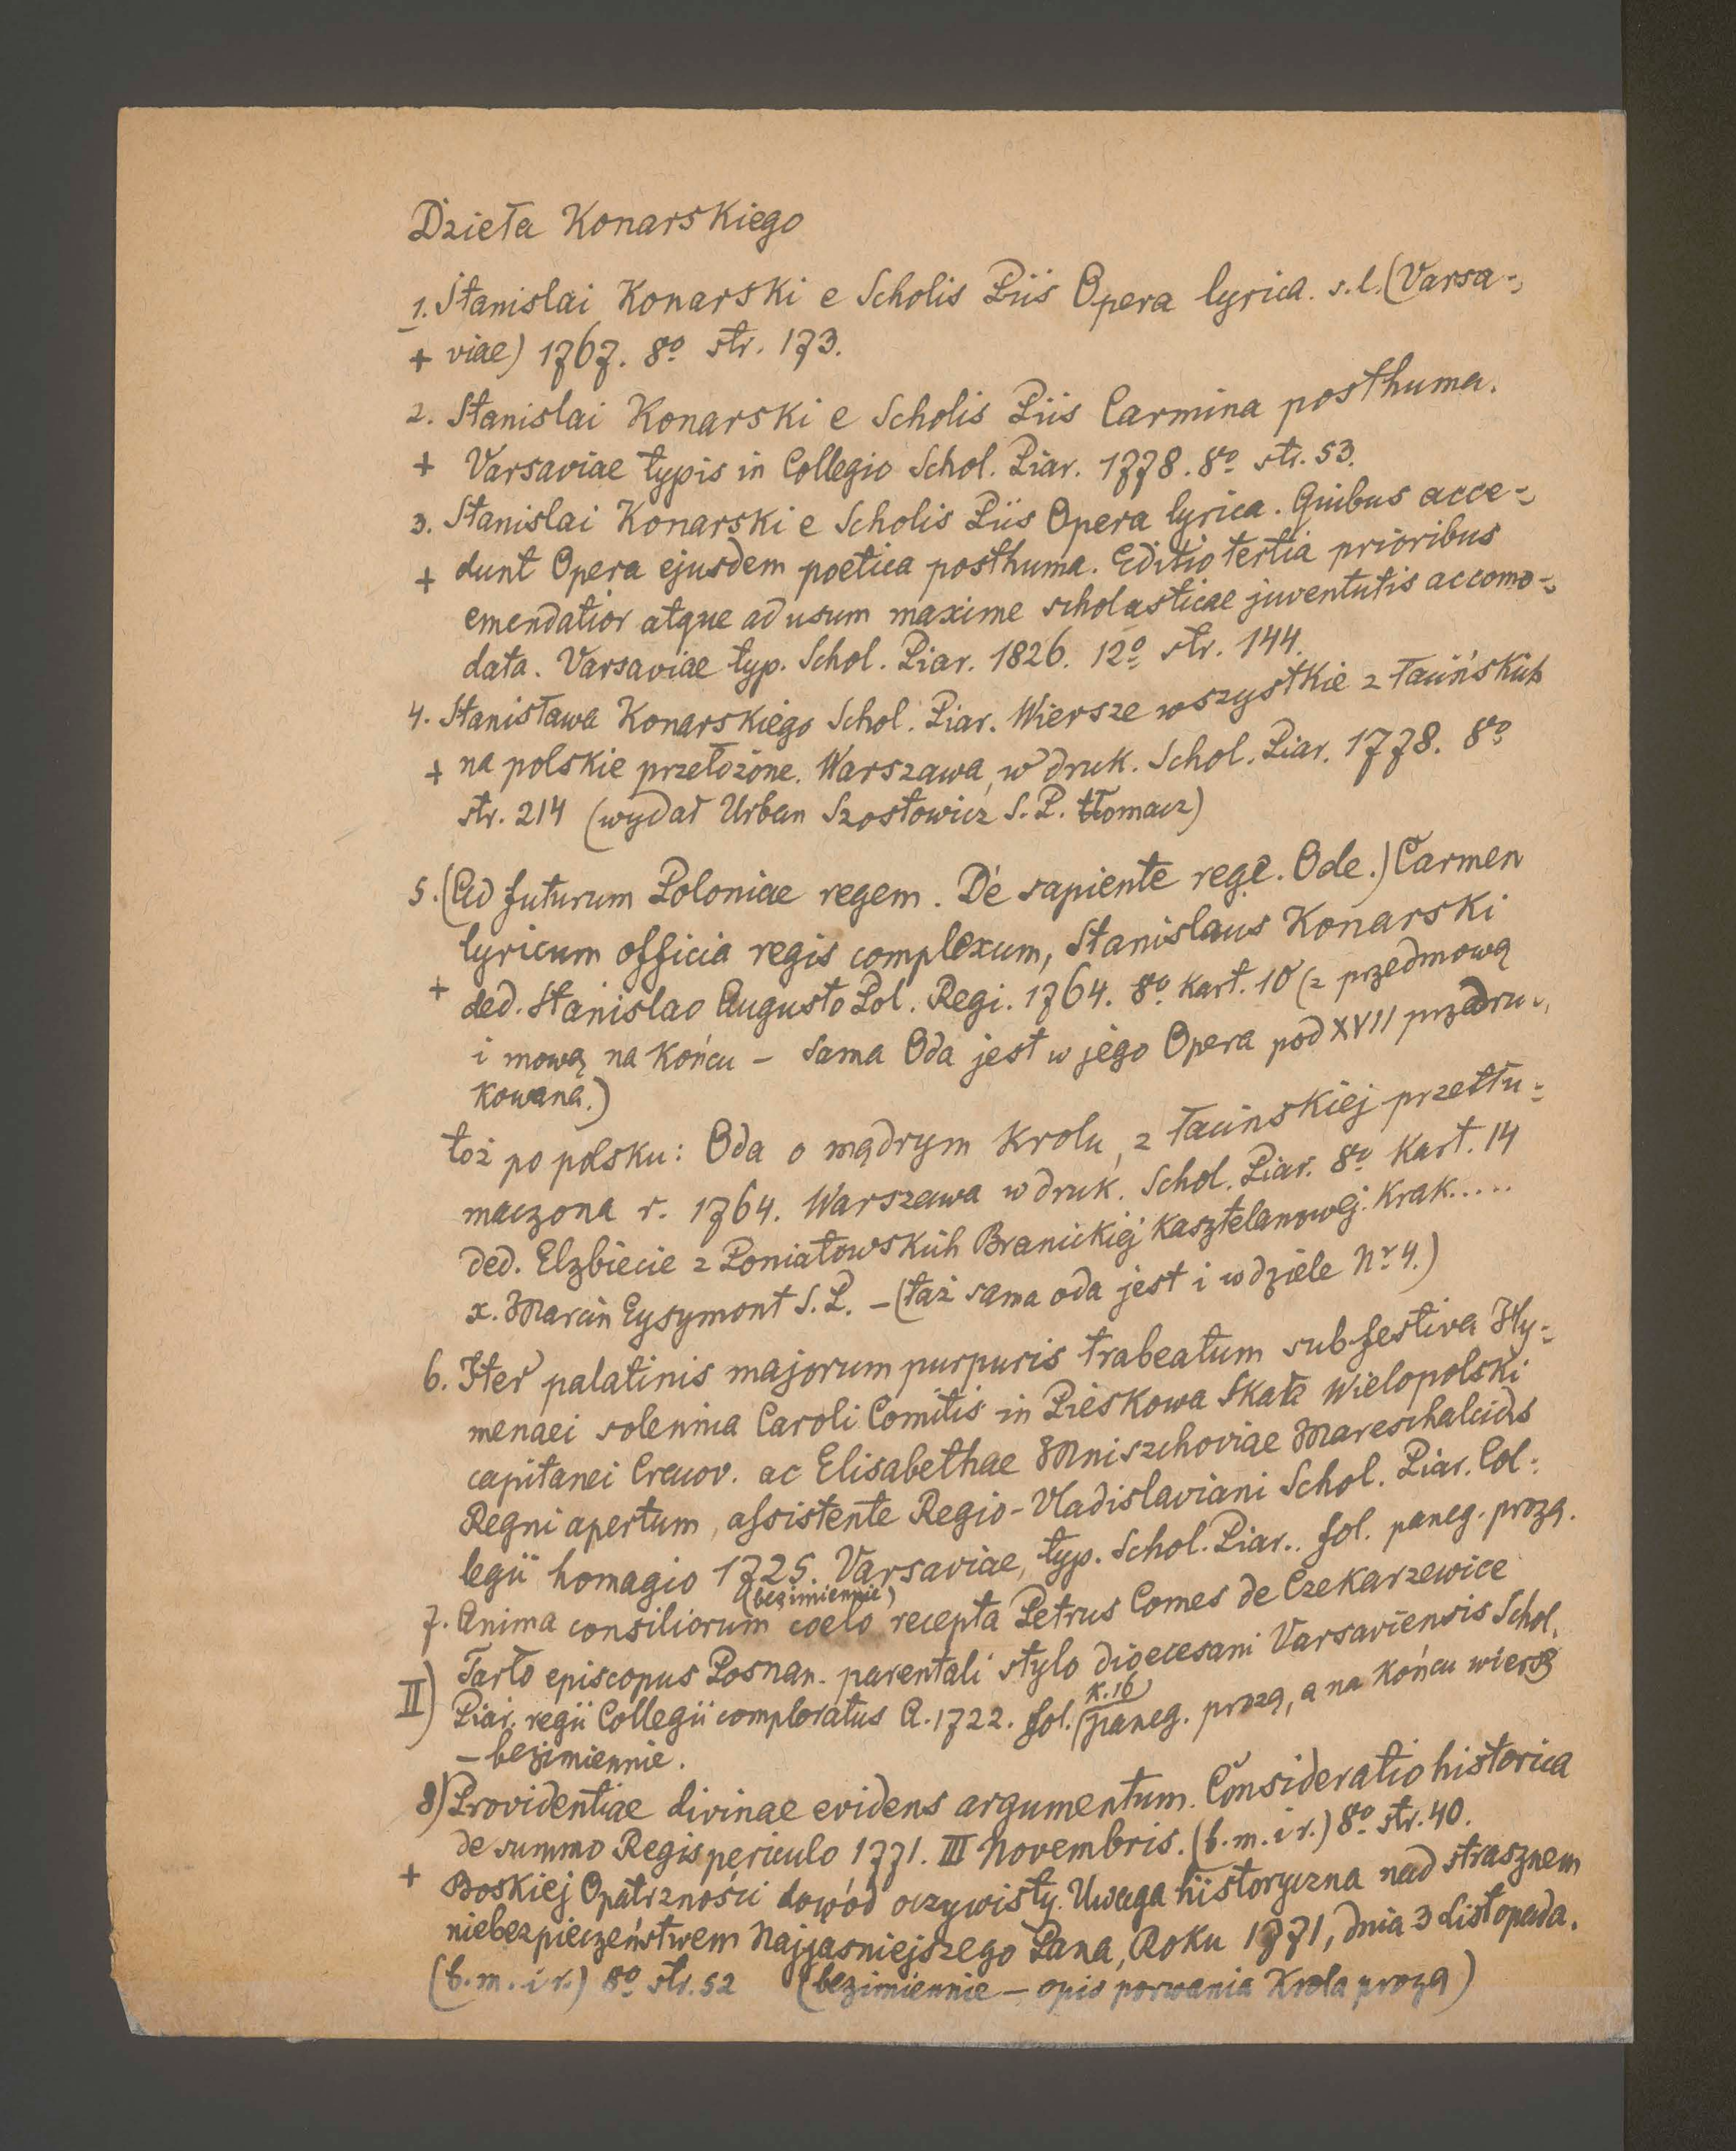 Dzieła Konarskiego
1. Stanislai Konarski e Scholis Piis Opera lyrica. s.l. (Varsa-
+ viae) 1767. 8o str. 173.
2. Stanislai Konarski e Scholis Piis Carmina posthuma.
+ Varsaviae typis in Collegio Schol. Piar. 1778. 8o str. 53.
3. Stanislai Konarski e Scholis Piis Opera lyrica. Quibus acce-
+ dunt Opera ejusdem poetica posthuma. Editio tertia prioribus
emendatior atque ad usum maxime scholasticae juventutis accomo-
data. Varsaviae typ. Schol. Piar. 1826. 12o str. 144.
4. Stanisława Konarskiego Schol. Piar. Wiersze wszystkie z łacińskich
+ na polskie przełożone. Warszawa, w druk. Schol. Piar. 1778. 8o
str. 214 (wydał Urban Szostowicz S.P. tłomacz)
5. (Ad futurum Poloniae regem. De sapiente rege. Ode.) Carmen
lyricum officia regis complexum, Stanislaus Konarski
+ ded. Stanislao Augusto Pol. Regi. 1764. 8o kart. 10 (z przedmową
i mową na końcu – sama Oda jest w jego Opera pod XVII przedru-
kowana.)
toż po polsku: Oda o mądrym Krolu, z łacinskiej przetłu-
maczona r. 1764. Warszawa w druk. Schol. Piar. 8o kart. 14
ded. Elzbiecie z Poniatowskich Branickiej kasztelanowej. Krak.....
x. Marcin Eysymont S.P. – (taż sama oda jest i w dziele Nr 4.)
6. Iter palatinis majorum purpuris trabeatum sub festiva Hy-
menaei solennia Caroli Comitis in Pieskowa Skała Wielopolski
capitanei Cracov. ac Elisabethae Mniszchoviae Mareschalcidis
Regni apertum, assistente Regio-Vladislaviani Schol. Piar. Col-
legii homagio 1725. Varsaviae, typ. Schol. Piar.. fol. paneg. prozą.
(bezimiennie)
7. Anima consiliorum coelo recepta Petrus Comes de Czekarzewice
Tarło episcopus Posnan. parentali stylo dioecesani Varsaviensis Schol.
II) Piar. regii Collegii comploratus A. 1722. fol. (k. 16) paneg. prozą, a na końcu wiersz
– bezimiennie.
8) Providentiae divinae evidens argumentum. Consideratio historica
de summo Regis periculo 1771. III Novembris. (b.m.i r.) 8o str. 40.
+ Boskiej Opatrzności dowód oczywisty. Uwaga historyczna nad strasznem
niebezpieczeństwem Najjasniejszego Pana, Roku 1771, dnia 3 Listopada.
(b.m.i r.) 8o str. 52 (bezimiennie – opis porwania Krola prozą)